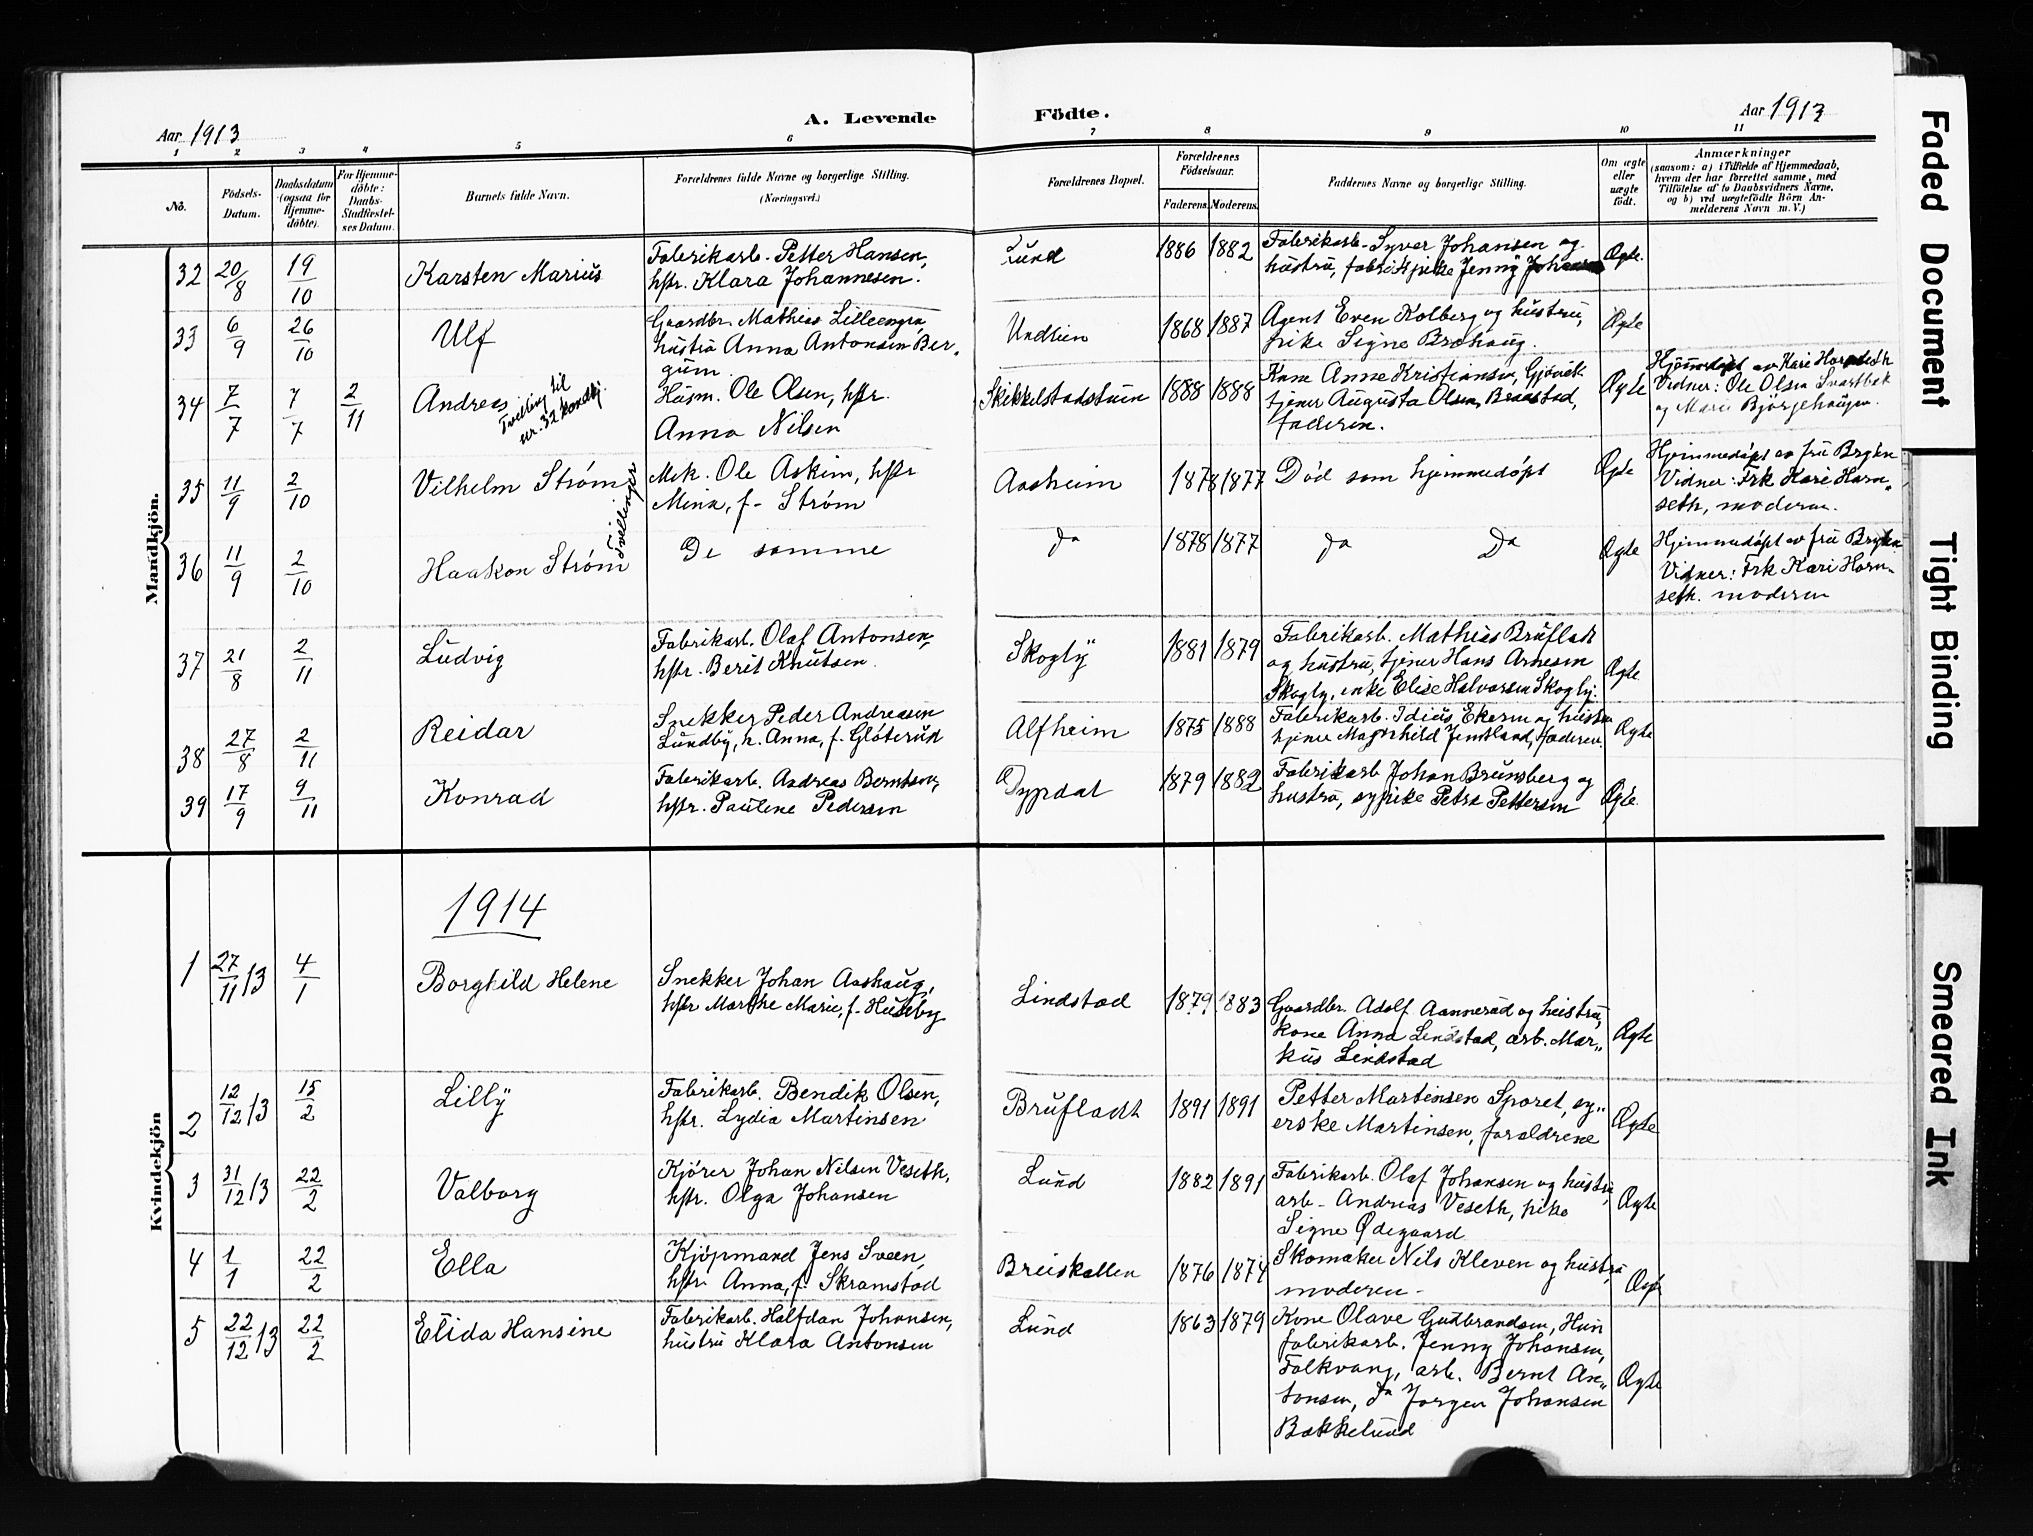 Aar 1913
A. Levende Födte.
Aar 1913
1 2 3 4 5 6 7 8 9 10 11
No.
Födsels-Datum.
Daabsdatum (ogsaa for Hjemme-döbte).
For Hjemme-döbte: Daabs-Stadfæstel-ses Datum.
Barnets fulde Navn.
Forældrenes fulde Navne og borgerlige Stilling.
(Næringsvei.)
Forældrenes Bopæl.
Forældrenes Födselsaar.
Faderens. Moderens.
Faddernes Navne og borgerlige Stilling.
Om ægte eller uægte födt.
Anmærkninger
(saasom: a) i Tilfælde af Hjemmedaab,
hvem der har forrettet samme, med
Tilföielse af to Daabsvidners Navne,
og b) ved uægtefödte Börn An-
melderens Navn m. V.)
Mandkjön.
32 20/8 19/10 Karsten Marius
Fabrikarb. Petter Hansen,
hstr. Klara Johannesen.
Lund 1886 1882
Fabrikarb. Syver Johansen og
hustru, fabrikpike Jenny Johansen
Ægte.
33 6/9 26/10 Ulf
Gaardbr. Mathias Lilleengen,
hustru Anna Antonsen Ber-
gum.
Undlien 1868 1887
Agent Even Kolberg og hustru,
pike Signe Brohaug.
Ægte
34 7/7 7/7 2/11 Andreas
Tvilling til
nr. 32 kvindkj.
Husm. Ole Olsen, hstr.
Anna Nilsen
Skikkelstadstuen 1888 1888
Kone Anne Kristiansen, Gjøvik
tjener Augusta Olsen, Braastad,
faderen.
Ægte
Hjemmedøpt av Kari Hornseth
Vidner: Ole Olsen Svartbæk
og Marie Bjørgehaugen.
35 11/9 2/10 Vilhelm Strøm
Tvillinger
Mek. Ole Askim, hstr
Mina, f. Strøm
Aasheim 1878 1877
Død som hjemmedøpt
Ægte
Hjemmedøpt av fru Bryhn
Vidner: Frk Kari Horn-
seth, moderen.
36 11/9 2/10 Haakon Strøm
De samme
Do 1878 1877 Do Do
Ægte
Hjemmedøpt av fru Bryhn
Vidner: Frk Kari Horn-
seth. moderen
37 21/8 2/11 Ludvig
Fabrikarb. Olaf Antonsen,
hstr. Berit Knutsen.
Skogly 1881 1879
Fabrikarb. Mathias Brufladt
og hustru, tjener Hans Arnesen
Skogly, enke Elise Halvorsen Skogly.
Ægte
38 27/8 2/11 Reidar
Snekker Peder Andreassen
Lundby, h. Anna, f. Gløterud
Alfheim 1875 1888
Fabrikarb. Idius Ekern og hustru
tjener Magnhild Jemtland, faderen.
Ægte
39 17/9 9/11 Konrad
Fabrikarb. Andreas Berntsen,
hstr. Pauline Pedersen
Dypdal 1879 1882
Fabrikarb Johan Brunsberg og
hustru, sypike Petra Pettersen
Ægte.
1914
Kvindekjön
1 27/11 13 4/1 Borghild Helene
Snekker Johan Aashaug,
hstr Marthe Marie, f. Huseby
Lindstad 1879 1883
Gaardbr. Adolf Aannerud og hustru,
kone Anna Lindstad, arb. Mar-
kus Lindstad
Ægte
2 12/12 13 15/2 Lilly
Fabrikarb. Bendik Olsen,
hstr. Lydia Martinsen
Brufladt 1891 1891
Petter Martinsen Sporet, sy-
erske Martinsen, forældrene
Ægte
3 31/12 13 22/2 Valborg
Kjører Johan Nilsen Veseth,
hstr. Olga Johansen
Lund 1882 1891
Fabrikarb. Olaf Johansen og hustru,
arb. Andreas Veseth, pike
Signe Ødegaard
Ægte
4 1/1 22/2 Ella
Kjøpmand Jens Sveen,
hstr. Anna, f. Skramstad
Breiskallen 1876 1874
Skomaker Nils Kleven og hustru,
moderen.
Ægte
5 22/12 13 22/2 Elida Hansine
Fabrikarb. Halfdan Johansen,
hustru Klara Antonsen
Lund 1863 1879
Kone Olave Gudbrandsen, Hun
fabrikarb. Jenny Johansen,
Folkvang, arb. Bernt An-
tonsen, Do Jørgen Johansen
Bakkelund
Ægte
Faded Document
Tight Binding
Smeared Ink